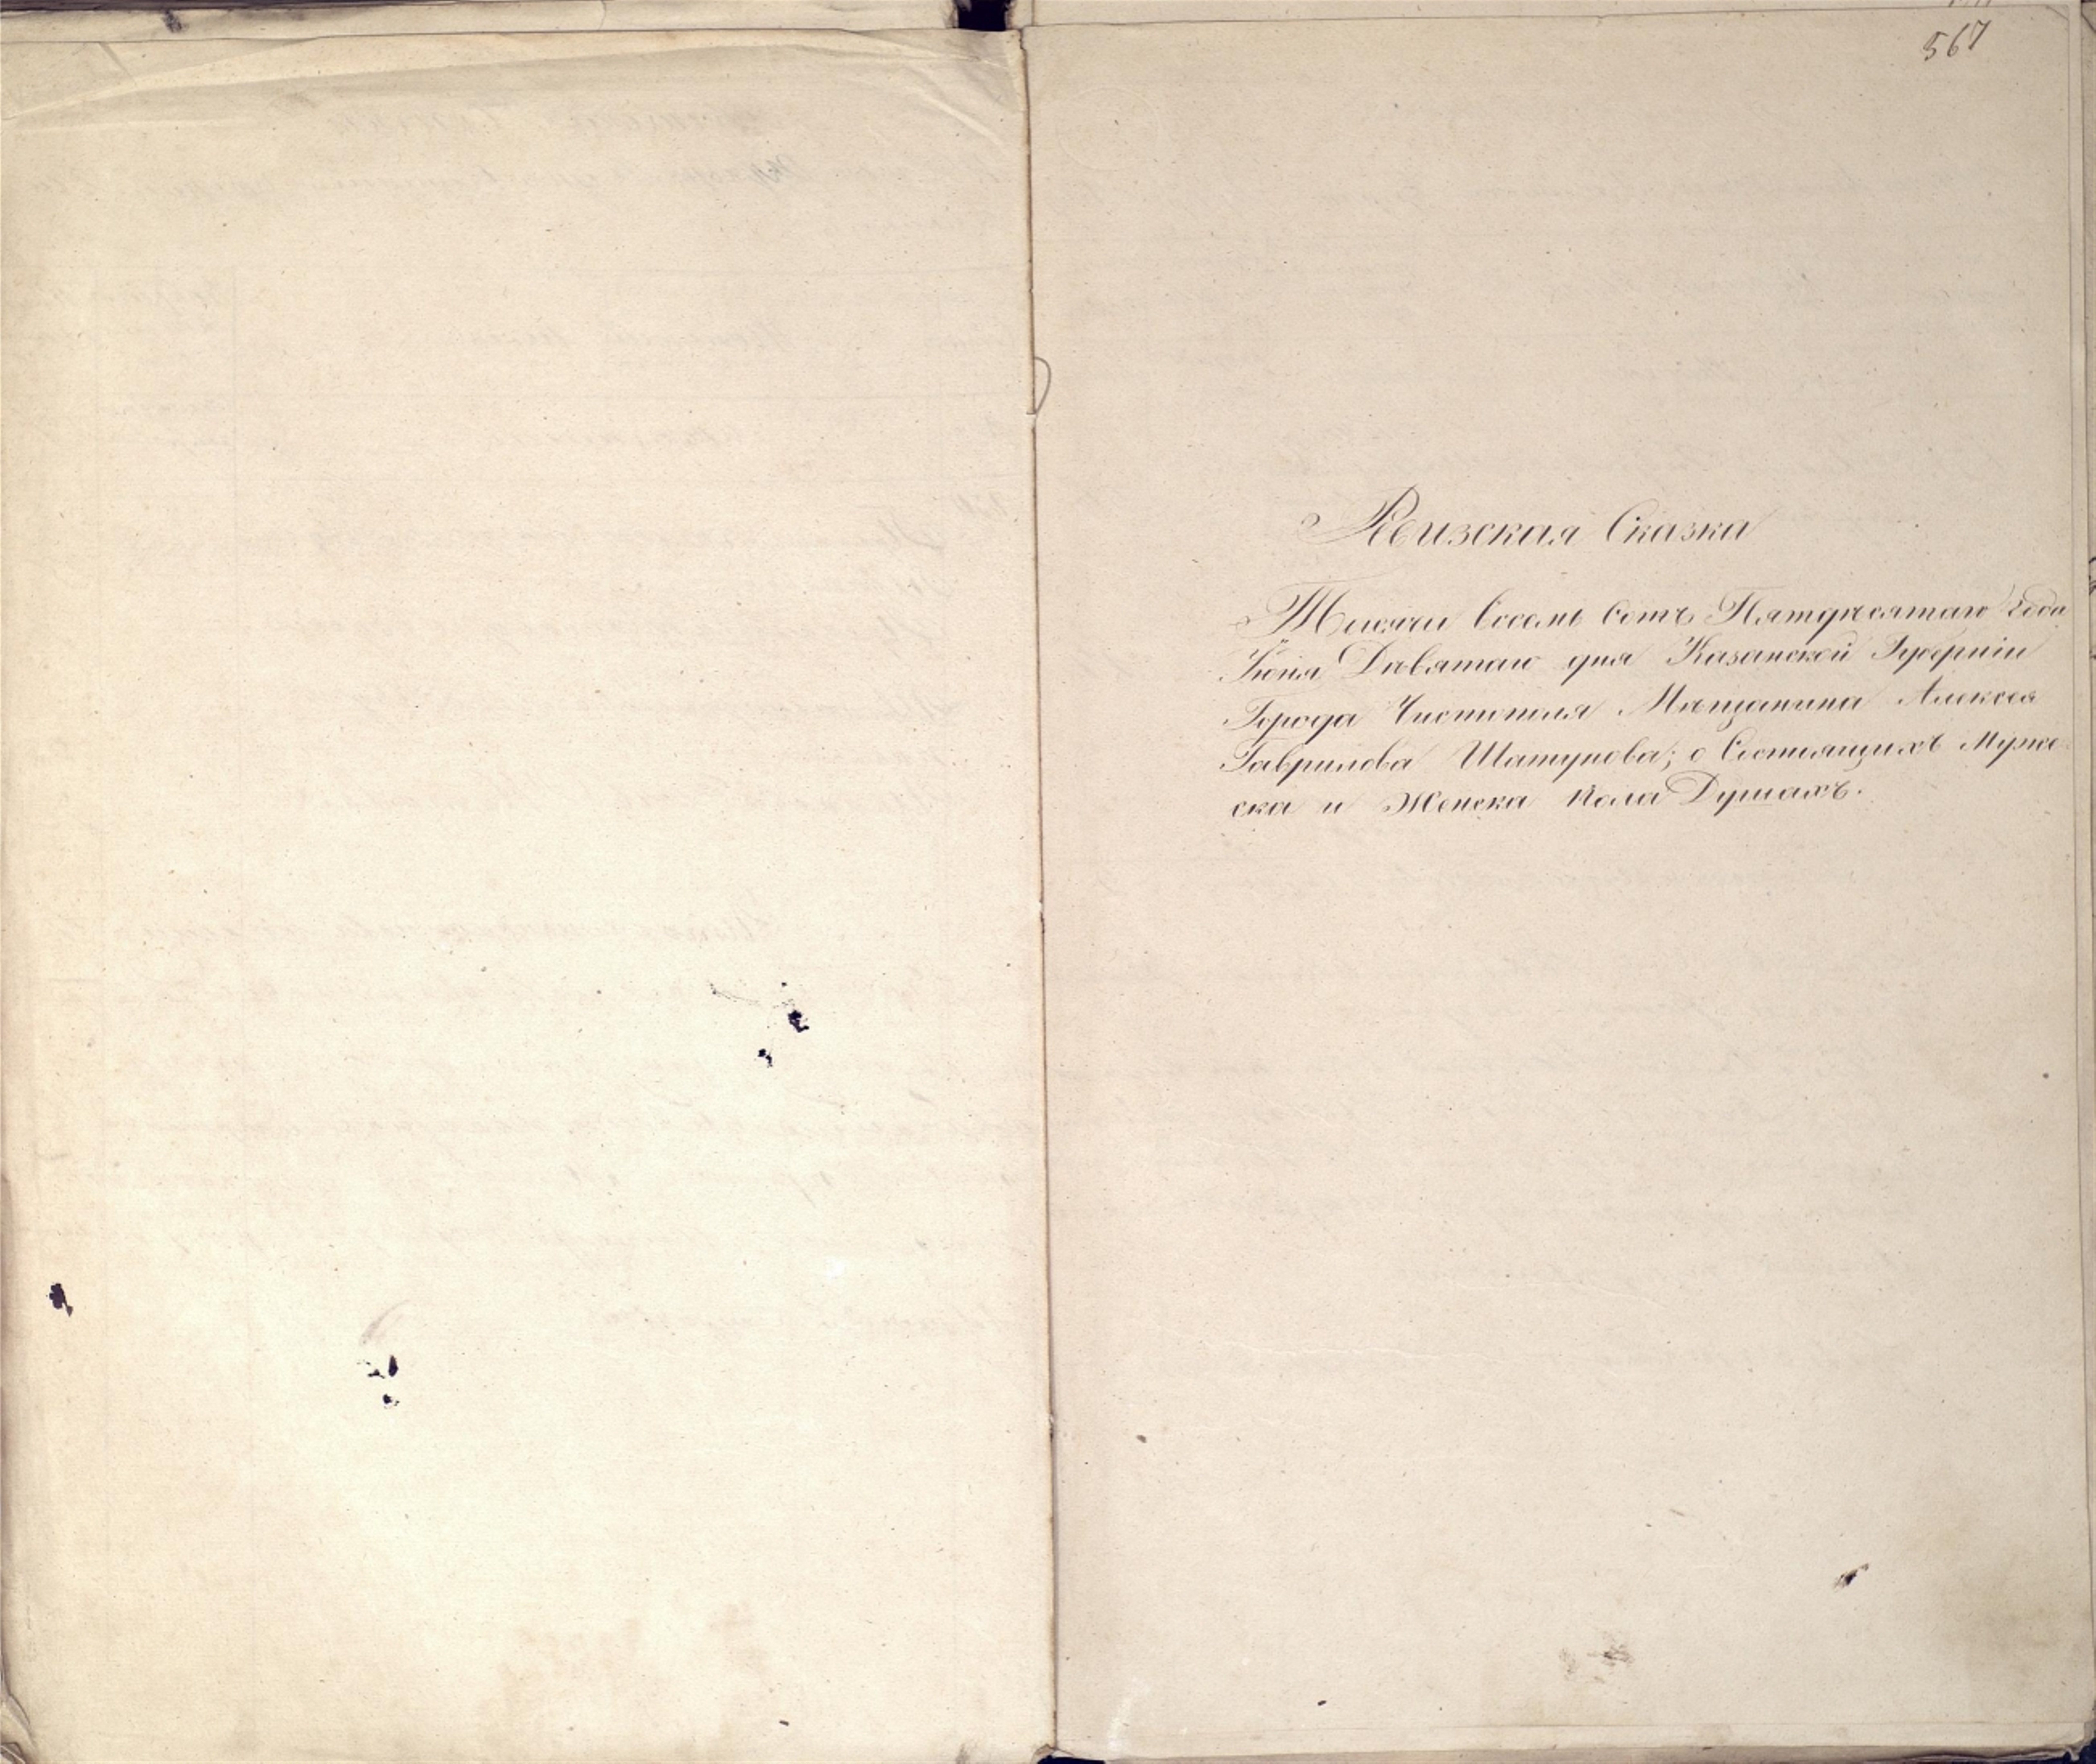 567
Ревизская Сказка
Тысячи Восемь Сотъ Пятдесятаго Года
Іюня Девятаго дня Казанской Губерніи
Города Чистополя Мѣщанина Алексея
Гаврилова Шатунова; о Состоящихъ Муже-
ска и Женска пола Душахъ.